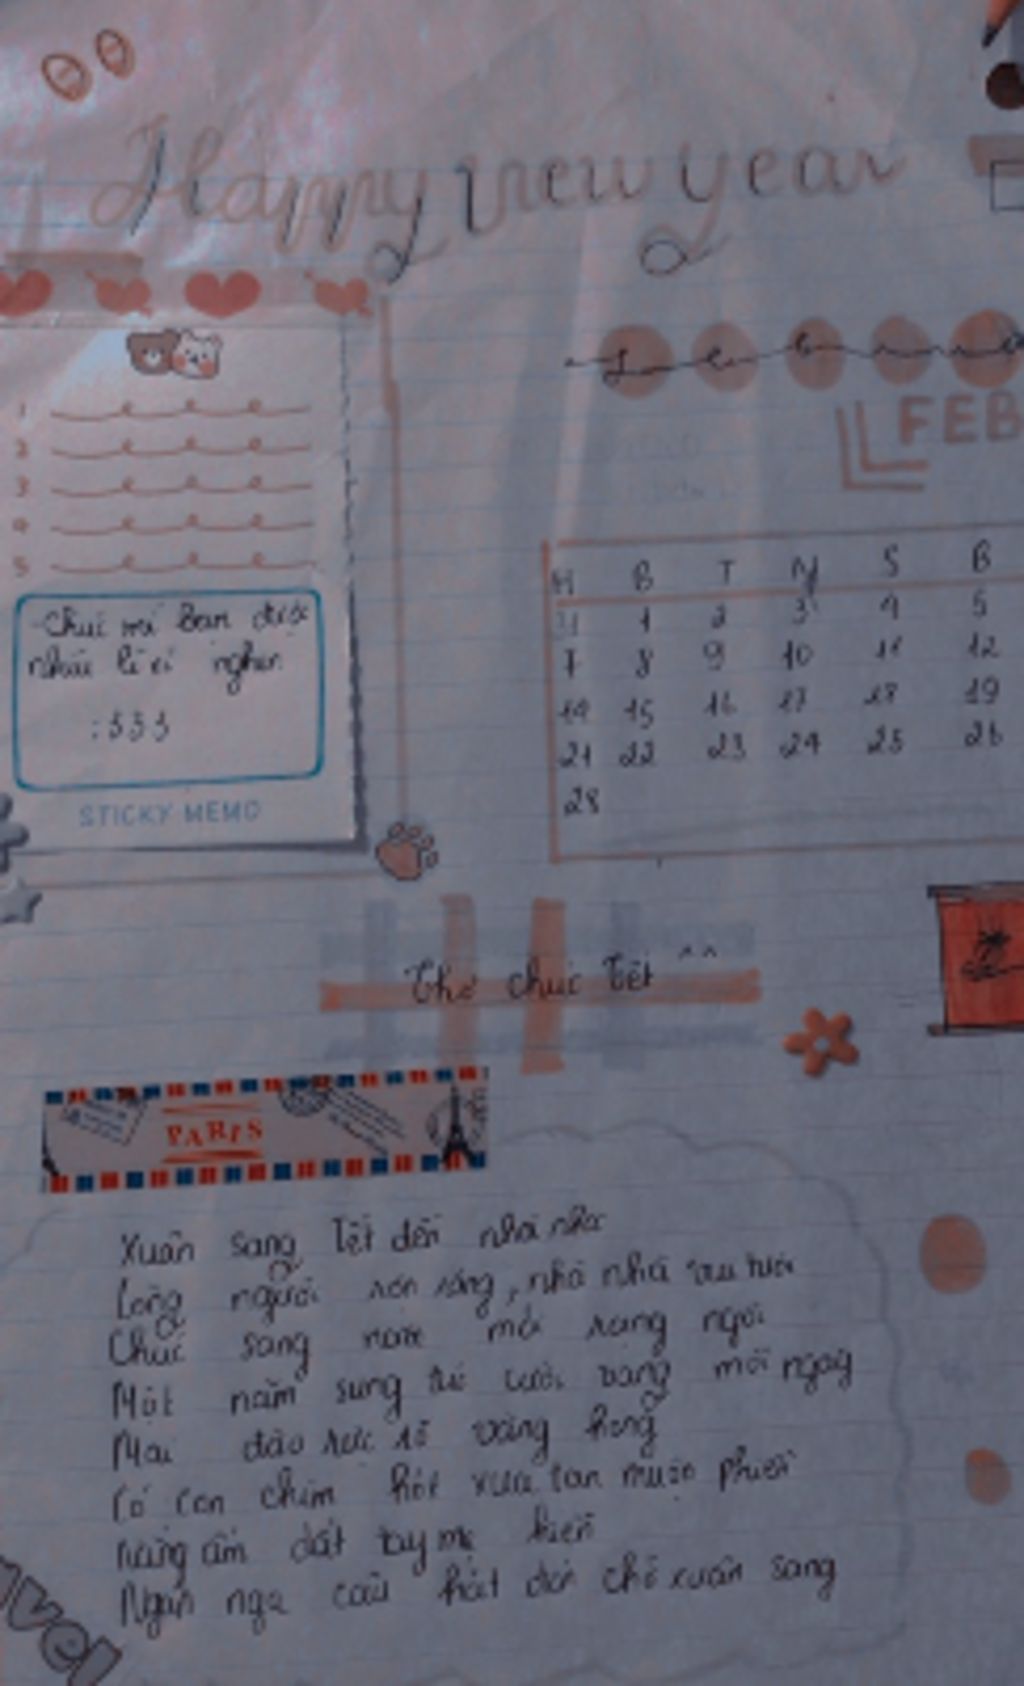 Happy new year
FEB
1
2
3
4
5
H B T N S B
31 1 2 3 4 5
7 8 9 10 11 12
14 15 16 17 18 19
21 22 23 24 25 26
28
Chúc mí bạn được
nhìu lì xì nghen
:333
STICKY MEMO
Thơ chúc Tết ^^
PARIS
Xuân sang Tết đến nhà nhà
Lòng người rộn ràng, nhà nhà tươi
Chúc sang năm mới rạng ngời
Một năm sung túc cười vang mỗi ngày
Mai đào rực rỡ vàng hồng
Có con chim hót xua tan muộn phiền
nắng ấm dắt tay mẹ hiền
Ngân nga câu hát đón chờ xuân sang